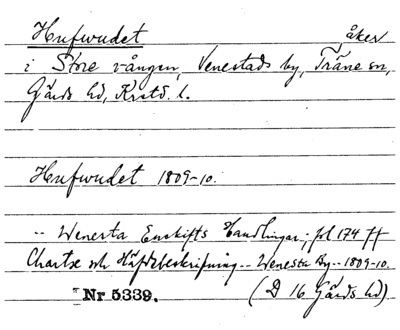 Hufwudet åker
i Store vången, Venestads by, Träne sn,
Gärds hd, Krstd. l.
Hufwudet 1809-10.
-- Wenesta Enskifts Handlingar; fol 174 ff
Chartæ och Häfdebeskrifning -- Wenesta By -- 1809-10.
Nr 5339. (D 16 Gärds hd)